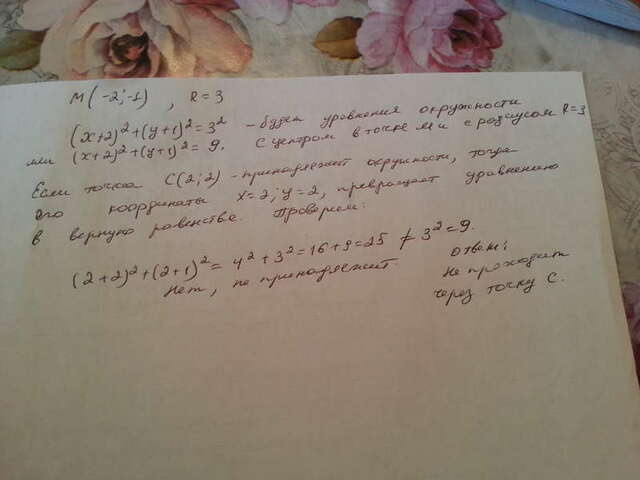 M(-2; -1) , R = 3
(x+2)² + (y+1)² = 3² - будет уравнения окружности
или (x+2)² + (y+1)² = 9. с центром в точке M и с радиусом R=3
Если точка C(2; 2) - принадлежит окружности, тогда
его координата x=2; y=2, превращает уравнению
в верную равенства. Проверяем:
(2+2)² + (2+1)² = 4² + 3² = 16 + 9 = 25 ≠ 3² = 9.
нет, не принадлежит. ответ:
не проходит
через точку C.